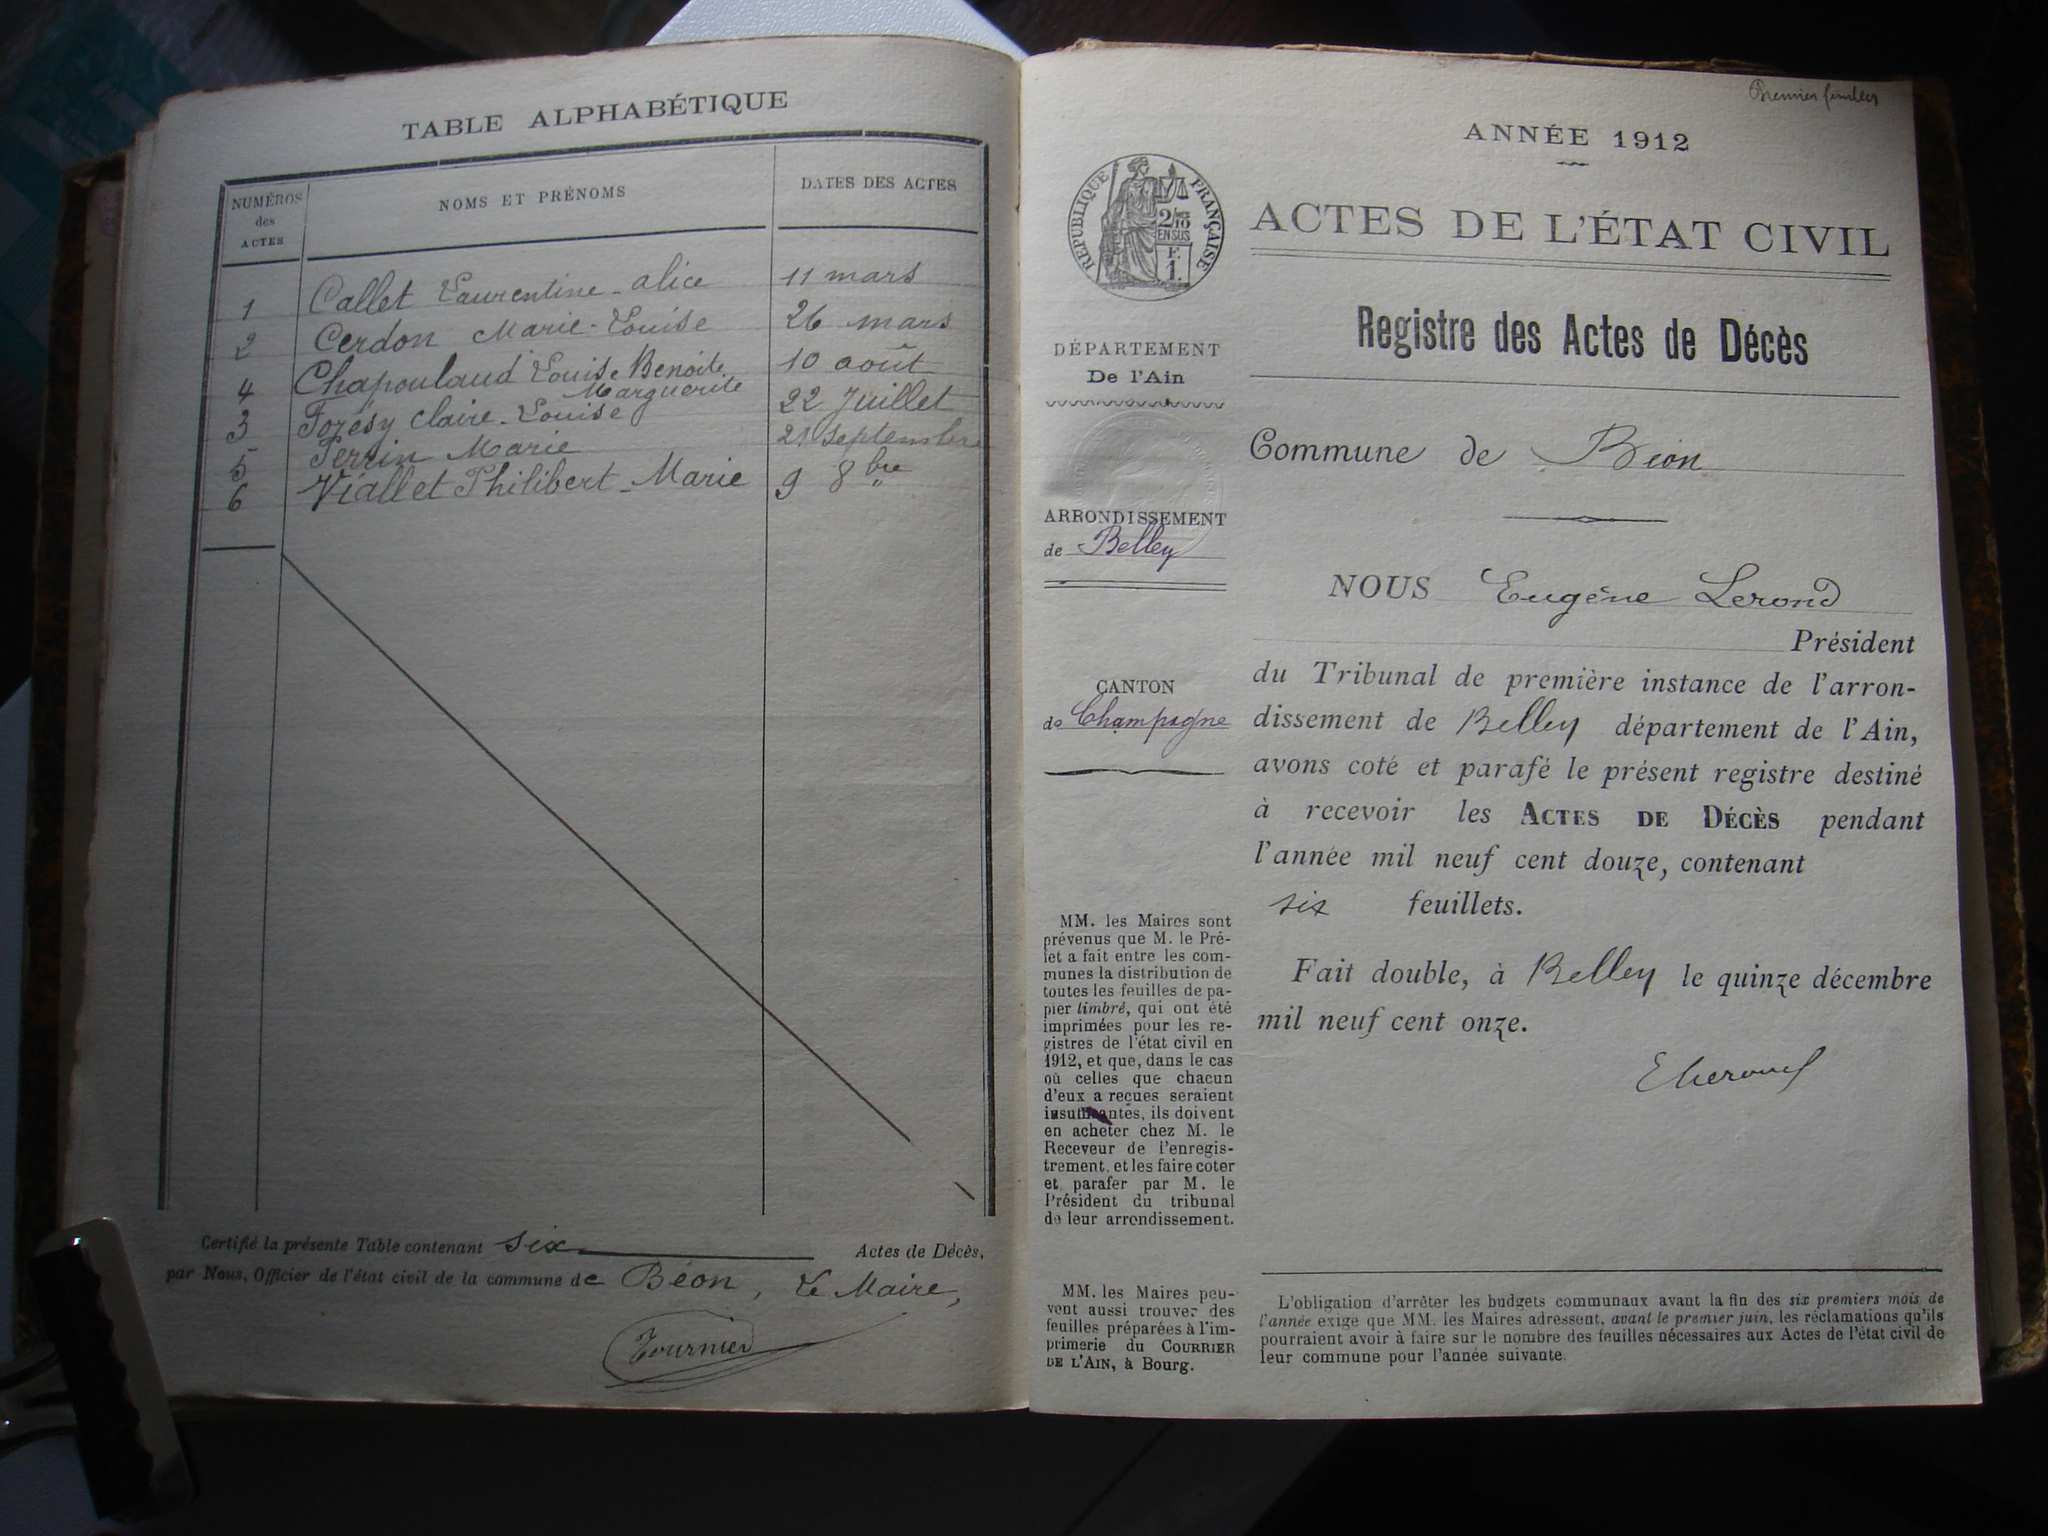 TABLE ALPHABÉTIQUE
NUMÉROS des ACTES
NOMS ET PRÉNOMS
DATES DES ACTES
1 Callet Laurentine - alice 11 mars
2 Cerdon Marie-Louise 26 mars
4 Chapouland Louise Benoite Marguerite 10 août
3 Forésy Claire-Louise 22 Juillet
5 Perrin Marie 21 septembre
6 Viallet Philibert-Marie 9 8bre
Certifié la présente Table contenant six Actes de Décès,
par Nous, Officier de l'état civil de la commune de Béon, Le Maire,
Tournier
Premier feuillet
ANNÉE 1912
RÉPUBLIQUE FRANÇAISE
2/10 EN SUS
F. 1.
ACTES DE L'ÉTAT CIVIL
Registre des Actes de Décès
DÉPARTEMENT
De l'Ain
Commune de Béon
ARRONDISSEMENT
de Belley
CANTON
de Champagne
NOUS Eugène Lerond
Président
du Tribunal de première instance de l'arron-
dissement de Belley département de l'Ain,
avons coté et parafé le présent registre destiné
à recevoir les ACTES DE DÉCÈS pendant
l'année mil neuf cent douze, contenant
six feuillets.
Fait double, à Belley le quinze décembre
mil neuf cent onze.
MM. les Maires sont
prévenus que M. le Pré-
fet a fait entre les com-
munes la distribution de
toutes les feuilles de pa-
pier timbré, qui ont été
imprimées pour les re-
gistres de l'état civil en
1912, et que, dans le cas
où celles que chacun
d'eux a reçues seraient
insuffisantes, ils doivent
en acheter chez M. le
Receveur de l'enregis-
trement, et les faire coter
et parafer par M. le
Président du tribunal
de leur arrondissement.
MM. les Maires peu-
vent aussi trouver des
feuilles préparées à l'im-
primerie du COURRIER
DE L'AIN, à Bourg.
L'obligation d'arrêter les budgets communaux avant la fin des six premiers mois de
l'année exige que MM. les Maires adressent, avant le premier juin, les réclamations qu'ils
pourraient avoir à faire sur le nombre des feuilles nécessaires aux Actes de l'état civil de
leur commune pour l'année suivante.